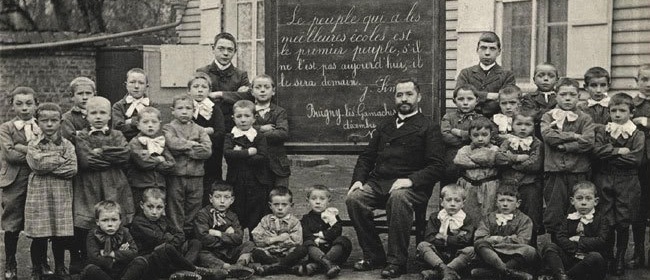 Le peuple qui a les
meilleures écoles est
le premier peuple, s'il
ne l'est pas aujourd'hui, il
le sera demain. J. Simon
Brégny, les Gamachs
décembre